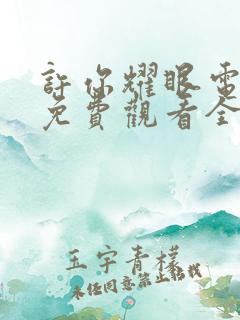 許你耀眼電
免費觀看全
玉宇青檬
未经同意禁止搬载